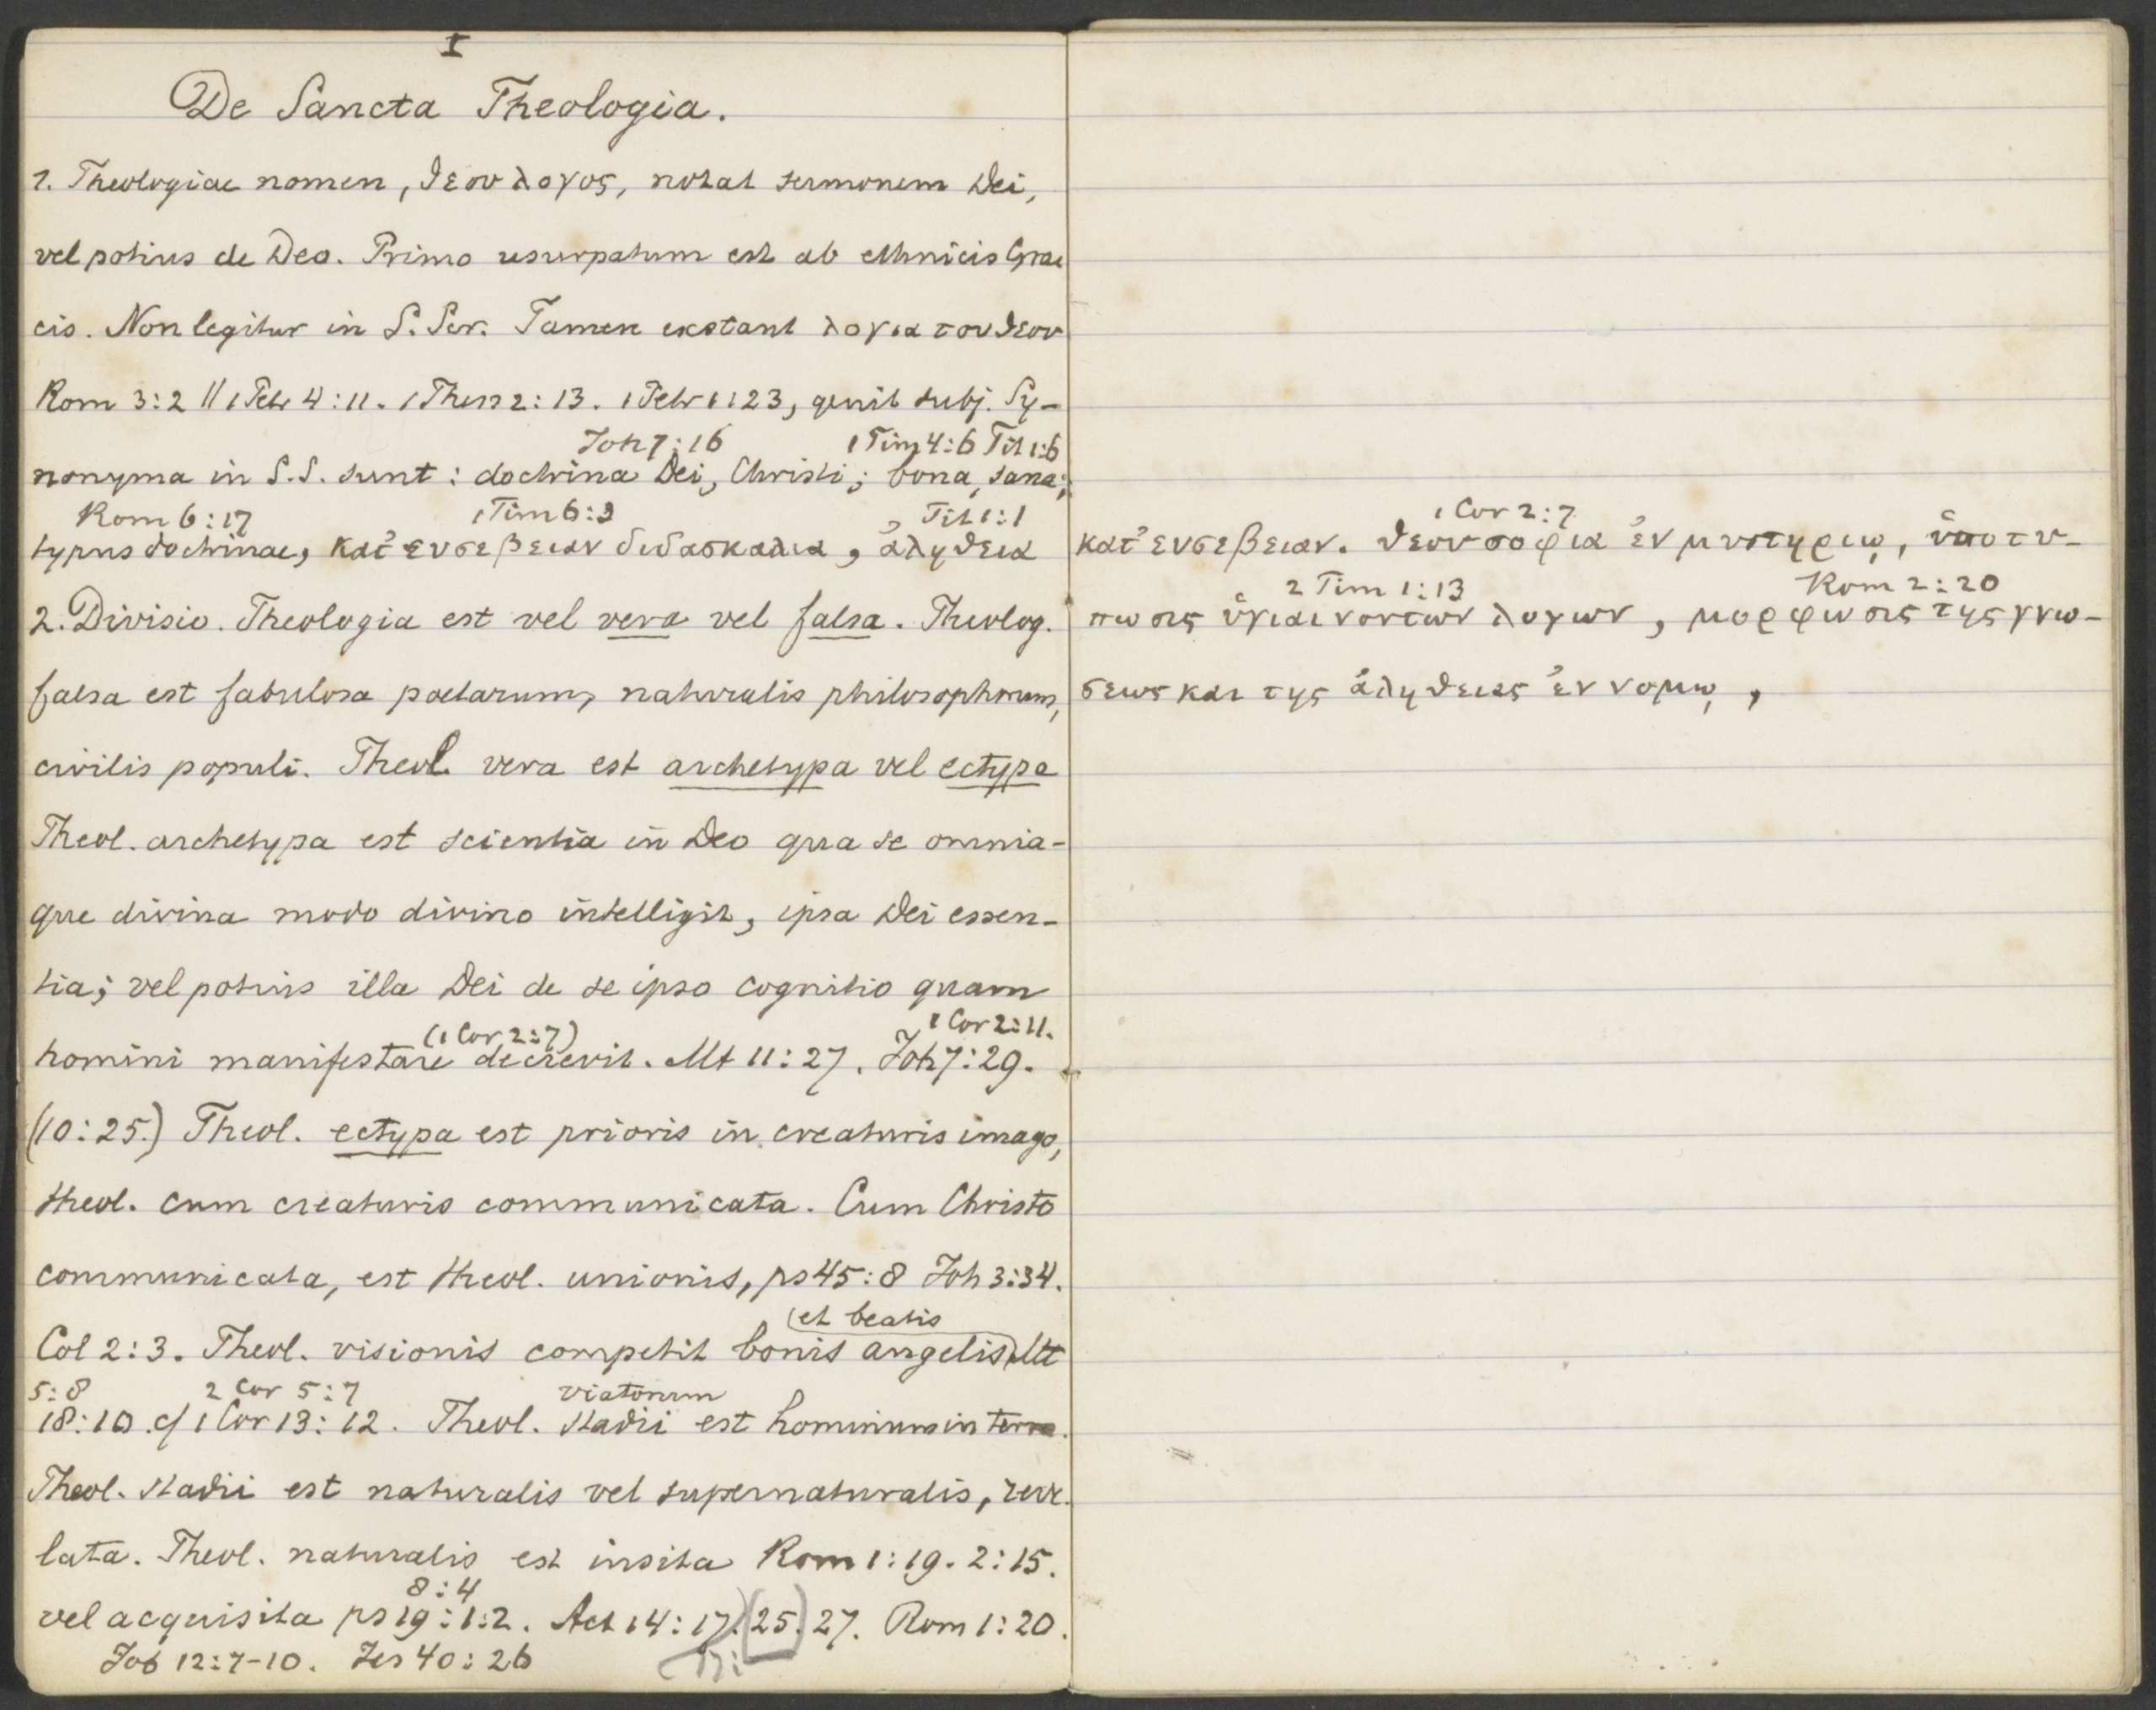 I
De Sancta Theologia.
1. Theologiae nomen, θεου λογος, notat sermonem Dei,
vel potius de Deo. Primo usurpatum est ab ethnicis Grae
cis. Non legitur in S. Scr. Tamen exstant λογια του θεου
Rom 3:2 || 1 Petr 4:11. 1 Thess 2:13. 1 Petr 1:23, genit subj. Sy-
Joh 7:16 1 Tim 4:6 Tit 1:6
nonyma in S.S. sunt: doctrina Dei, Christi; bona, sana;
Rom 6:17 1 Tim 6:3 Tit 1:1
typus doctrinae, κατ' ευσεβειαν διδασκαλια, ἀληθεια
2. Divisio. Theologia est vel vera vel falsa. Theolog.
falsa est fabulosa poetarum, naturalis philosophorum,
civilis populi. Theol. vera est archetypa vel ectypa
Theol. archetypa est scientia in Deo qua se omnia-
que divina modo divino intelligit, ipsa Dei essen-
tia; vel potius illa Dei de se ipso cognitio quam
(1 Cor 2:7) 1 Cor 2:11.
homini manifestare decrevit. Mt 11:27. Joh 7:29.
(10:25.) Theol. ectypa est prioris in creaturis imago,
theol. cum creaturis communicata. Cum Christo
communicata, est theol. unionis, ps 45:8 Joh 3:34.
(et beatis
Col 2:3. Theol. visionis competit bonis angelis) Mt
5:8 2 Cor 5:7 viatorum
18:10. cf 1 Cor 13:12. Theol. stadii est hominum in terra.
Theol. stadii est naturalis vel supernaturalis, reve-
lata. Theol. naturalis est insita Rom 1:19. 2:15.
8:4
vel acquisita ps 19:1:2. Act 14:17. (25.) 27. Rom 1:20.
17:
Job 12:7-10. Jes 40:26
1 Cor 2:7
κατ' ευσεβειαν. θεου σοφια ἐν μυστηριῳ, ὑποτυ-
2 Tim 1:13 Rom 2:20
πωσις ὑγιαινοντων λογων, μορφωσις της γνω-
σεως και της ἀληθειας ἐν νομῳ,